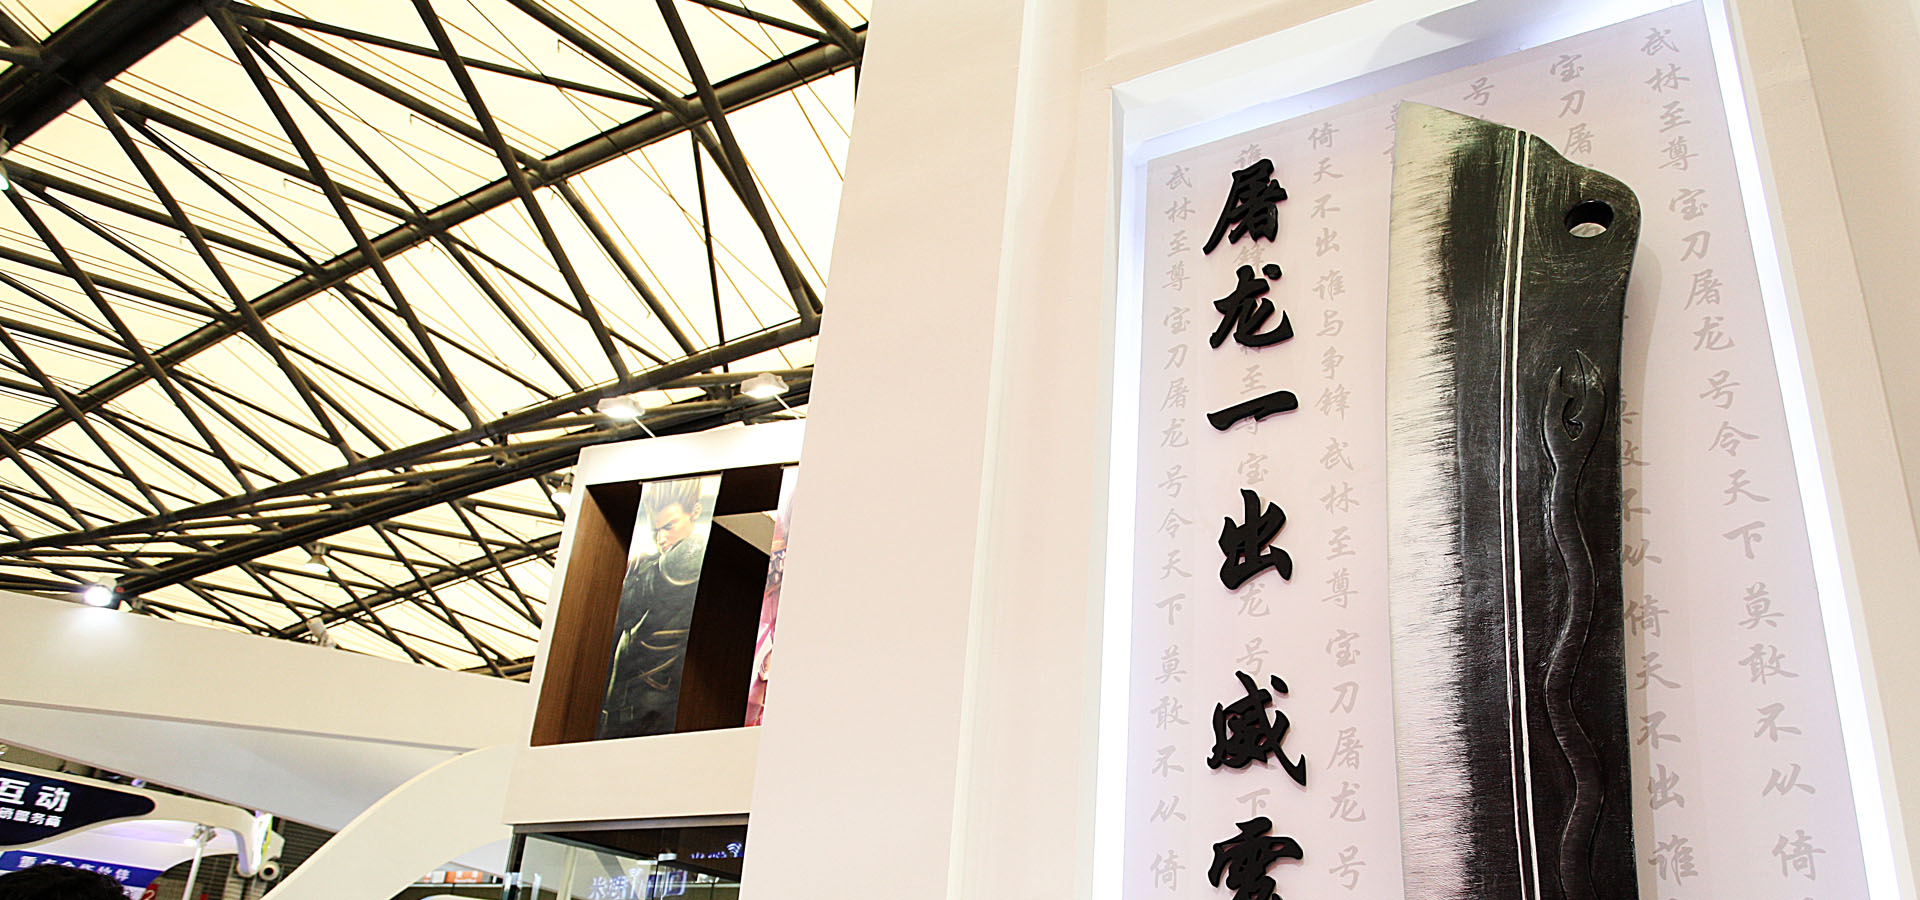 屠龙一出威震
武林至尊宝刀屠龙号令天下莫敢不从倚
宝刀屠
号
倚天不出谁与争锋武林至尊宝刀屠龙号
武林至尊宝刀屠龙号令天下莫敢不从倚
从倚天不出谁
互动
服务商